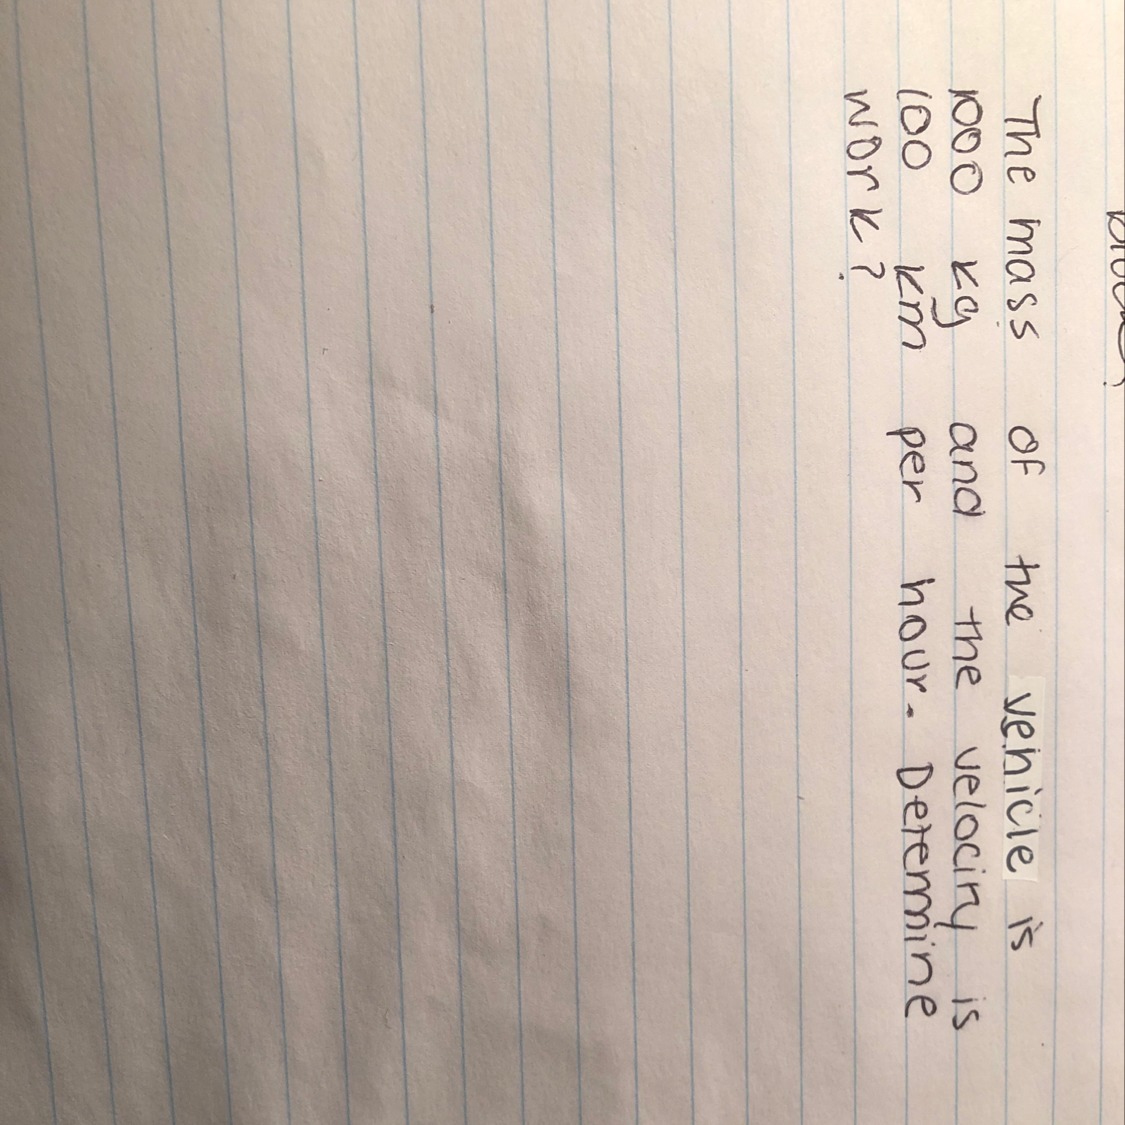 The mass of the vehicle is
1000 kg and the velocity is
100 km per hour. Determine
work?